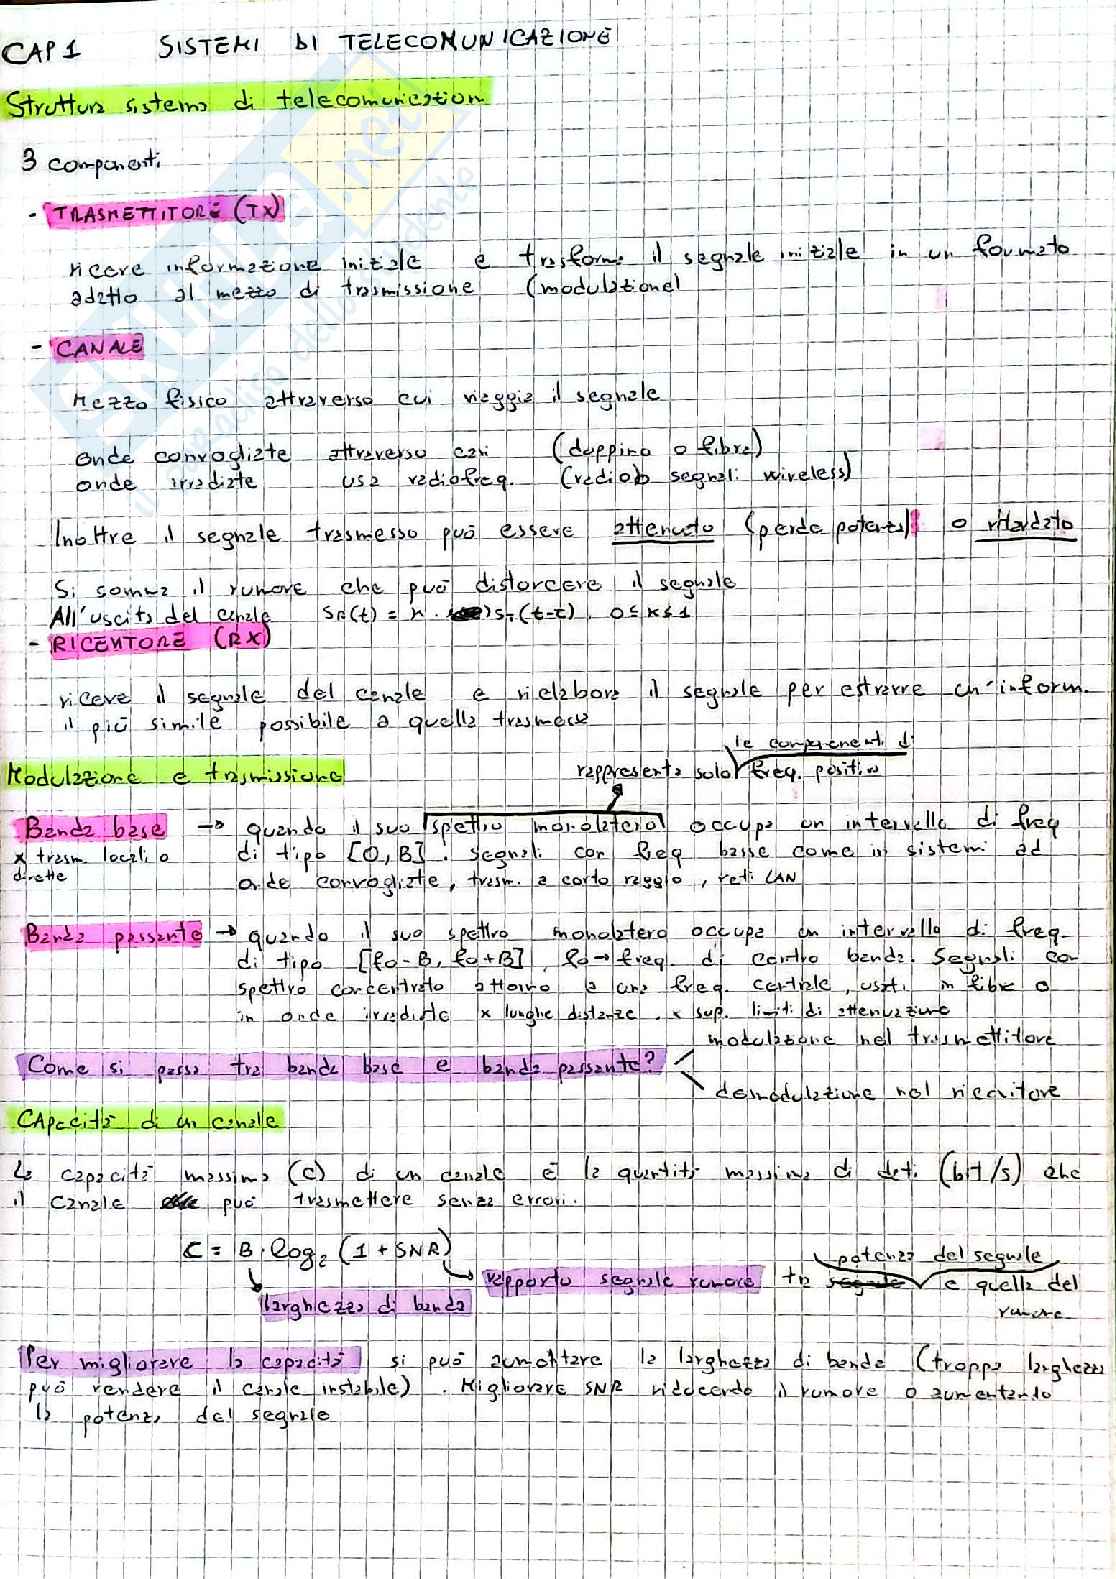 CAP 1 SISTEMI DI TELECOMUNICAZIONE
Struttura sistema di telecomunication
3 componenti
- TRASMETTITORE (TX)
riceve informazione iniziale e trasforma il segnale iniziale in un formato
adatto al mezzo di trasmissione (modulazione)
- CANALE
Mezzo fisico attraverso cui viaggia il segnale
onde convogliate attraverso cavi (doppino o fibra)
onde irradiate usa radiofreq. (radio segnali wireless)
Inoltre il segnale trasmesso può essere attenuato (perde potenza) o ritardato
Si somma il rumore che può distorcere il segnale
All'uscita del canale SR(t) = K · ST(t-τ), 0≤K≤1
- RICEVITORE (RX)
riceve il segnale del canale e rielabora il segnale per estrarre un'inform.
il più simile possibile a quella trasmessa
le componenti di
Modulazione e trasmissione rappresenta solo freq. positive
Banda base → quando il suo spettro monolatero occupa un intervallo di freq
x trasm. locali o di tipo [0, B]. segnali con freq basse come in sistemi ad
dirette onde convogliate, trasm. a corto raggio, reti LAN
Banda passante → quando il suo spettro monolatero occupa un intervallo di freq.
di tipo [f0-B, f0+B], f0→freq. di centro banda. Segnali con
spettro concentrato attorno a una freq. centrale, usati in fibra o
in onde irradiate x lunghe distanze. x sup. limiti di attenuazione
modulazione nel trasmettitore
Come si passa tra banda base e banda passante?
demodulazione nel ricevitore
CApacità di un canale
La capacità massima (C) di un canale è la quantità massima di dati (bit/s) che
il canale può trasmettere senza errori.
C = B·log2 (1 + SNR)
potenza del segnale
rapporto segnale rumore tra e quella del
larghezza di banda rumore
Per migliorare la capacità si può aumentare la larghezza di banda (troppa larghezza
può rendere il canale instabile). Migliorare SNR riducendo il rumore o aumentando
la potenza del segnale